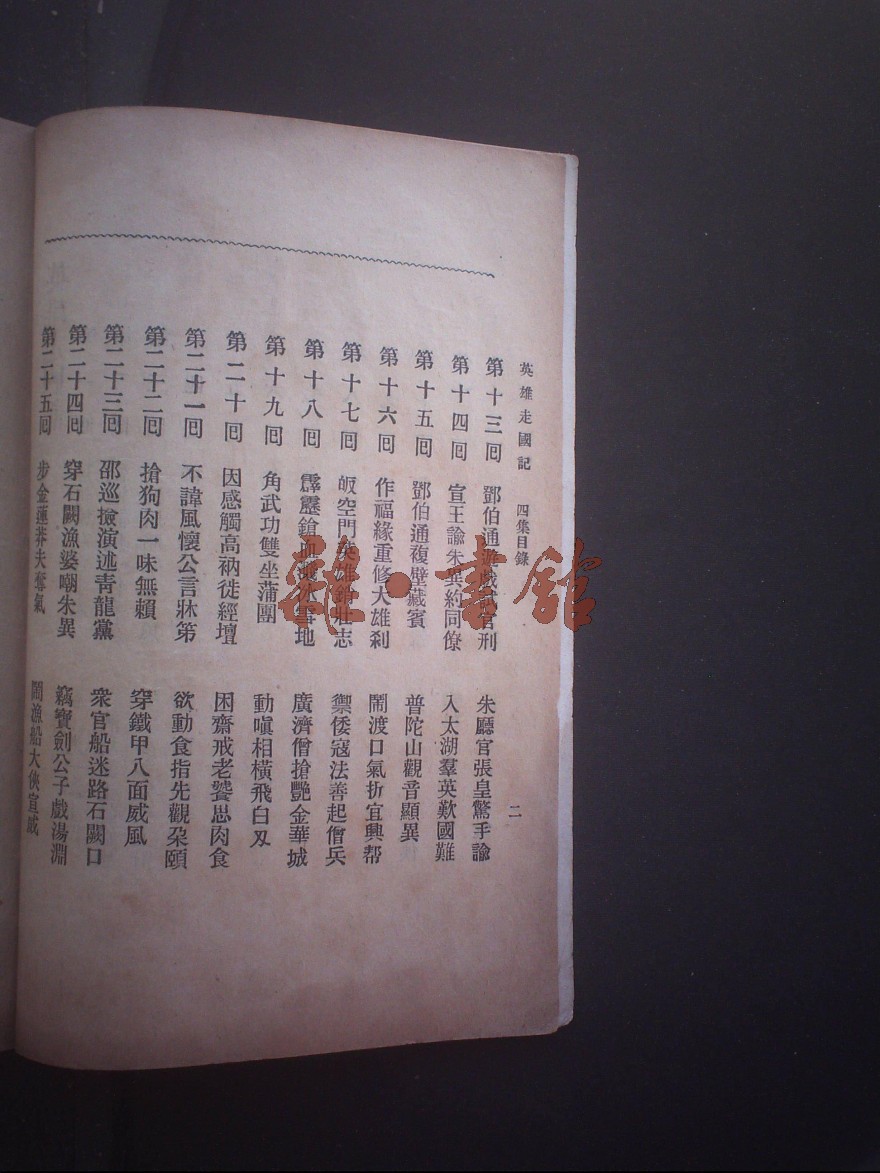 英雄走國記 四集目錄 二
第十三回 鄧伯通遊戲試官刑 朱廳官張皇驚手諭
第十四回 宣王諭朱異約同僚 入太湖羣英歎國難
第十五回 鄧伯通複壁藏賓 普陀山觀音顯異
第十六回 作福緣重修大雄刹 鬧渡口氣折宜興帮
第十七回 皈空門英雄銷壯志 禦倭寇法善起僧兵
第十八回 霹靂鎗血濺冰雪地 廣濟僧搶艷金華城
第十九回 角武功雙坐蒲團 動嗔相橫飛白刄
第二十回 因感觸高衲徙經壇 困齋戒老饕思肉食
第二十一回 不諱風懷公言牀笫 欲動食指先觀朶頤
第二十二回 搶狗肉一味無賴 穿鐵甲八面威風
第二十三回 邵巡撿演述青龍黨 衆官船迷路石闕口
第二十四回 穿石闕漁婆嘲朱異 竊寶劍公子戲湯淵
第二十五回 步金蓮莽夫奪氣 鬧漁船大俠宣威
雜·書館